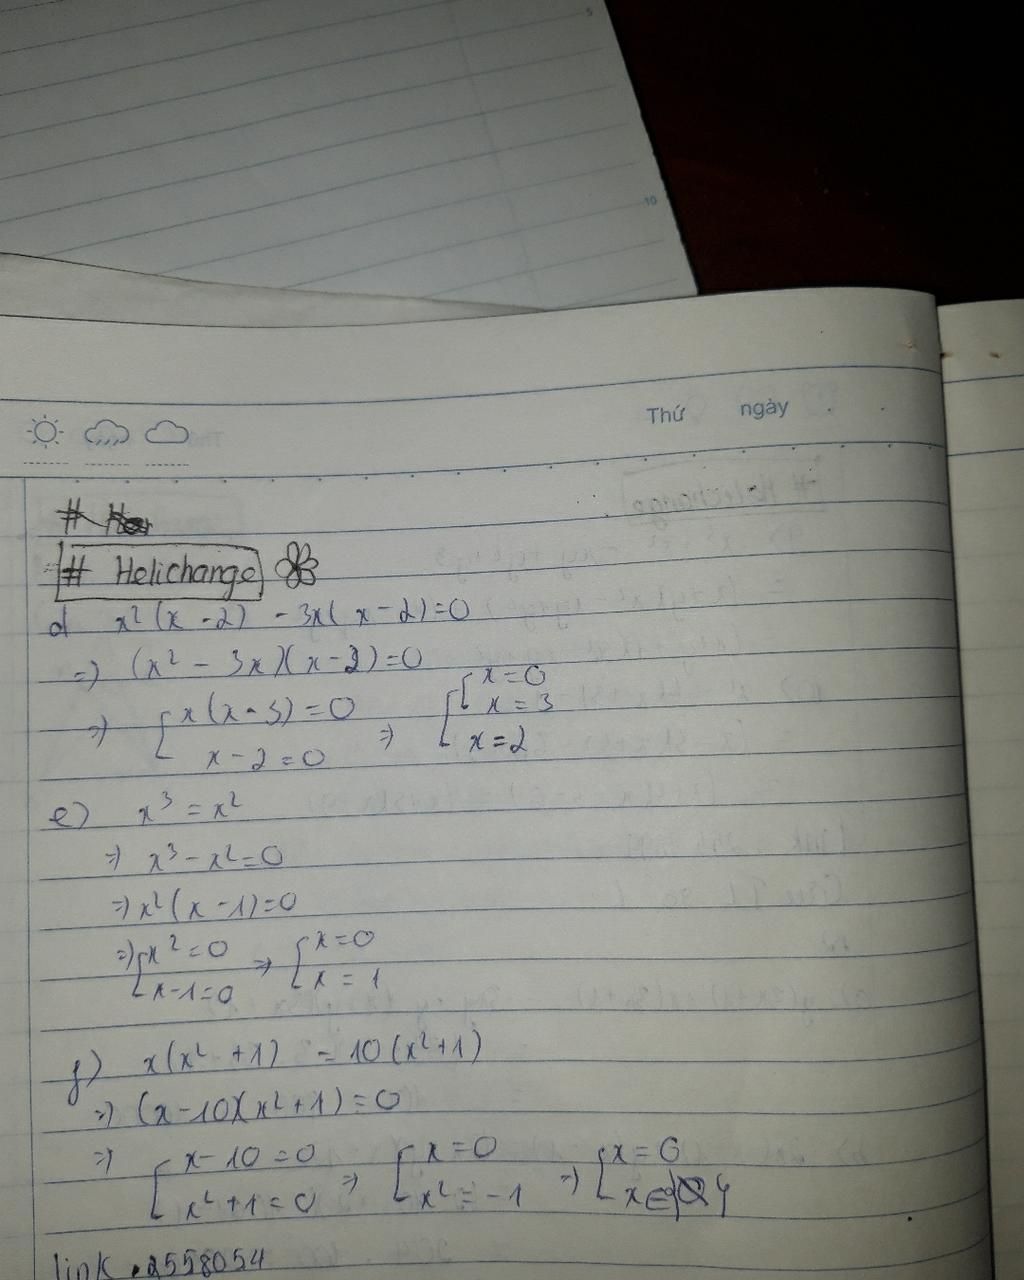 5
10
Thứ ngày
# Helichange
d x²(x - 2) - 3x(x - 2) = 0
=) (x² - 3x)(x - 2) = 0
=) [ x(x - 3) = 0 =) [ [ x = 0
x = 3
x - 2 = 0 x = 2
e) x³ = x²
=) x³ - x² = 0
=) x²(x - 1) = 0
=) [ x² = 0 => [ x = 0
x - 1 = 0 x = 1
f) x(x² + 1) = 10(x² + 1)
=) (x - 10)(x² + 1) = 0
=) [ x - 10 = 0 =) [ x = 0 =) [ x = 0
x² + 1 = 0 x² = -1 x ∈
link . 2558054